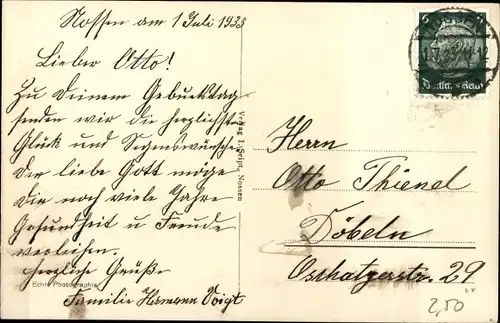 Nossen am 1 Juli 1933
Lieber Otto!
Zu Deinem Geburtstag
senden wir die herzlichsten
Glück und Segenswünsche
Der liebe Gott möge
Dir noch viele Jahre
Gesundheit u Freude
verleihen.
Herzliche Grüße
Familie Hermann Voigt
Echte Photographie
Verlag I. Seipt, Nossen
Deutsches Reich
Herrn
Otto Thienel
Döbeln
Oschatzerstr. 29
2,50